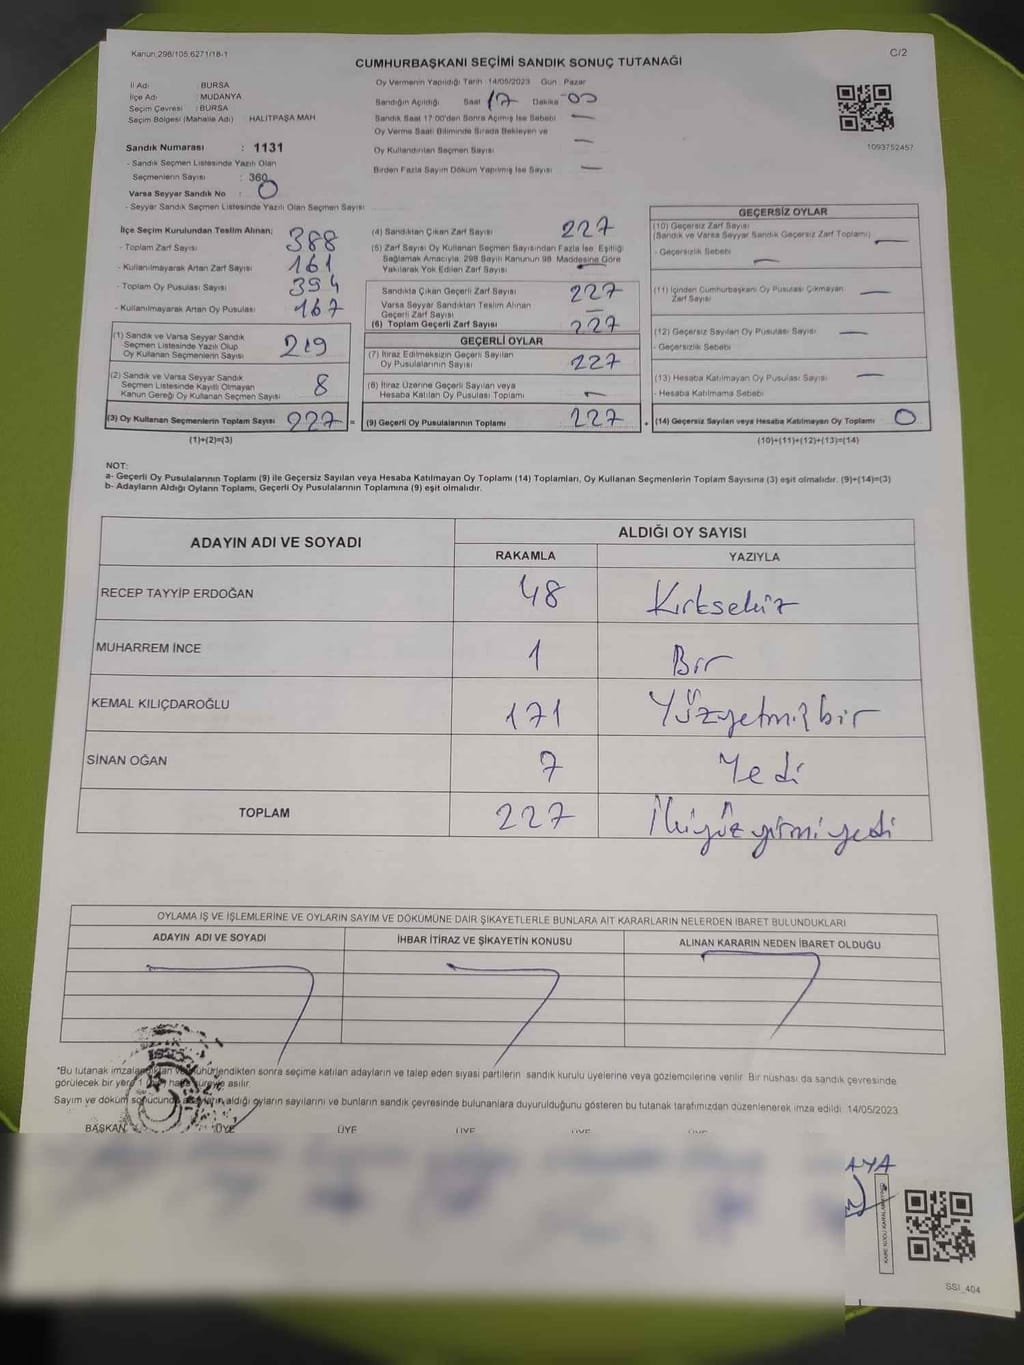 Kanun 298/105,6271/18-1
C/2
CUMHURBAŞKANI SEÇİMİ SANDIK SONUÇ TUTANAĞI
İl Adı : BURSA
İlçe Adı : MUDANYA
Seçim Çevresi : BURSA
Seçim Bölgesi (Mahalle Adı) HALİTPAŞA MAH
Sandık Numarası : 1131
- Sandık Seçmen Listesinde Yazılı Olan
Seçmenlerin Sayısı : 360
Varsa Seyyar Sandık No : 0
- Seyyar Sandık Seçmen Listesinde Yazılı Olan Seçmen Sayısı
Oy Vermenin Yapıldığı Tarih :14/05/2023 Gün: Pazar
Sandığın Açıldığı Saat 17 Dakika 00
Sandık Saat 17:00'den Sonra Açılmış İse Sebebi —
Oy Verme Saati Bitiminde Sırada Bekleyen ve
Oy Kullandırılan Seçmen Sayısı —
Birden Fazla Sayım Döküm Yapılmış İse Sayısı —
1093752457
İlçe Seçim Kurulundan Teslim Alınan;
- Toplam Zarf Sayısı 388
- Kullanılmayarak Artan Zarf Sayısı 161
- Toplam Oy Pusulası Sayısı 394
- Kullanılmayarak Artan Oy Pusulası 167
(1) Sandık ve Varsa Seyyar Sandık
Seçmen Listesinde Yazılı Olup
Oy Kullanan Seçmenlerin Sayısı 219
(2) Sandık ve Varsa Seyyar Sandık
Seçmen Listesinde Kayıtlı Olmayan
Kanun Gereği Oy Kullanan Seçmen Sayısı 8
(3) Oy Kullanan Seçmenlerin Toplam Sayısı 227 =
(1)+(2)=(3)
(4) Sandıktan Çıkan Zarf Sayısı 227
(5) Zarf Sayısı Oy Kullanan Seçmen Sayısından Fazla İse, Eşitliği
Sağlamak Amacıyla, 298 Sayılı Kanunun 98. Maddesine Göre
Yakılarak Yok Edilen Zarf Sayısı —
Sandıkta Çıkan Geçerli Zarf Sayısı 227
Varsa Seyyar Sandıktan Teslim Alınan
Geçerli Zarf Sayısı —
(6) Toplam Geçerli Zarf Sayısı 227
GEÇERLİ OYLAR
(7) İtiraz Edilmeksizin Geçerli Sayılan
Oy Pusulalarının Sayısı 227
(8) İtiraz Üzerine Geçerli Sayılan veya
Hesaba Katılan Oy Pusulası Toplamı —
(9) Geçerli Oy Pusulalarının Toplamı 227 +
GEÇERSİZ OYLAR
(10) Geçersiz Zarf Sayısı
(Sandık ve Varsa Seyyar Sandık Geçersiz Zarf Toplamı) —
- Geçersizlik Sebebi —
(11) İçinden Cumhurbaşkanı Oy Pusulası Çıkmayan
Zarf Sayısı —
(12) Geçersiz Sayılan Oy Pusulası Sayısı —
- Geçersizlik Sebebi
(13) Hesaba Katılmayan Oy Pusulası Sayısı —
- Hesaba Katılmama Sebebi
(14) Geçersiz Sayılan veya Hesaba Katılmayan Oy Toplamı 0
(10)+(11)+(12)+(13)=(14)
NOT:
a- Geçerli Oy Pusulalarının Toplamı (9) ile Geçersiz Sayılan veya Hesaba Katılmayan Oy Toplamı (14) Toplamları, Oy Kullanan Seçmenlerin Toplam Sayısına (3) eşit olmalıdır. (9)+(14)=(3)
b- Adayların Aldığı Oyların Toplamı, Geçerli Oy Pusulalarının Toplamına (9) eşit olmalıdır.
ADAYIN ADI VE SOYADI
ALDIĞI OY SAYISI
RAKAMLA YAZIYLA
RECEP TAYYİP ERDOĞAN 48 Kırksekiz
MUHARREM İNCE 1 Bir
KEMAL KILIÇDAROĞLU 171 Yüzyetmişbir
SİNAN OĞAN 7 Yedi
TOPLAM 227 İkiyüzyirmiyedi
OYLAMA İŞ VE İŞLEMLERİNE VE OYLARIN SAYIM VE DÖKÜMÜNE DAİR ŞİKAYETLERLE BUNLARA AİT KARARLARIN NELERDEN İBARET BULUNDUKLARI
ADAYIN ADI VE SOYADI İHBAR İTİRAZ VE ŞİKAYETİN KONUSU ALINAN KARARIN NEDEN İBARET OLDUĞU
*Bu tutanak sonra seçime katılan adayların ve talep eden siyasi partilerin sandık kurulu üyelerine veya gözlemcilerine verilir. Bir nüshası da sandık çevresinde
görülecek bir yere 1 asılır.
Sayım ve döküm sonucunda aldığı oyların sayılarını ve bunların sandık çevresinde bulunanlara duyurulduğunu gösteren bu tutanak tarafımızdan düzenlenerek imza edildi. 14/05/2023
BAŞKAN ÜYE ÜYE ÜYE ÜYE
SSI_404